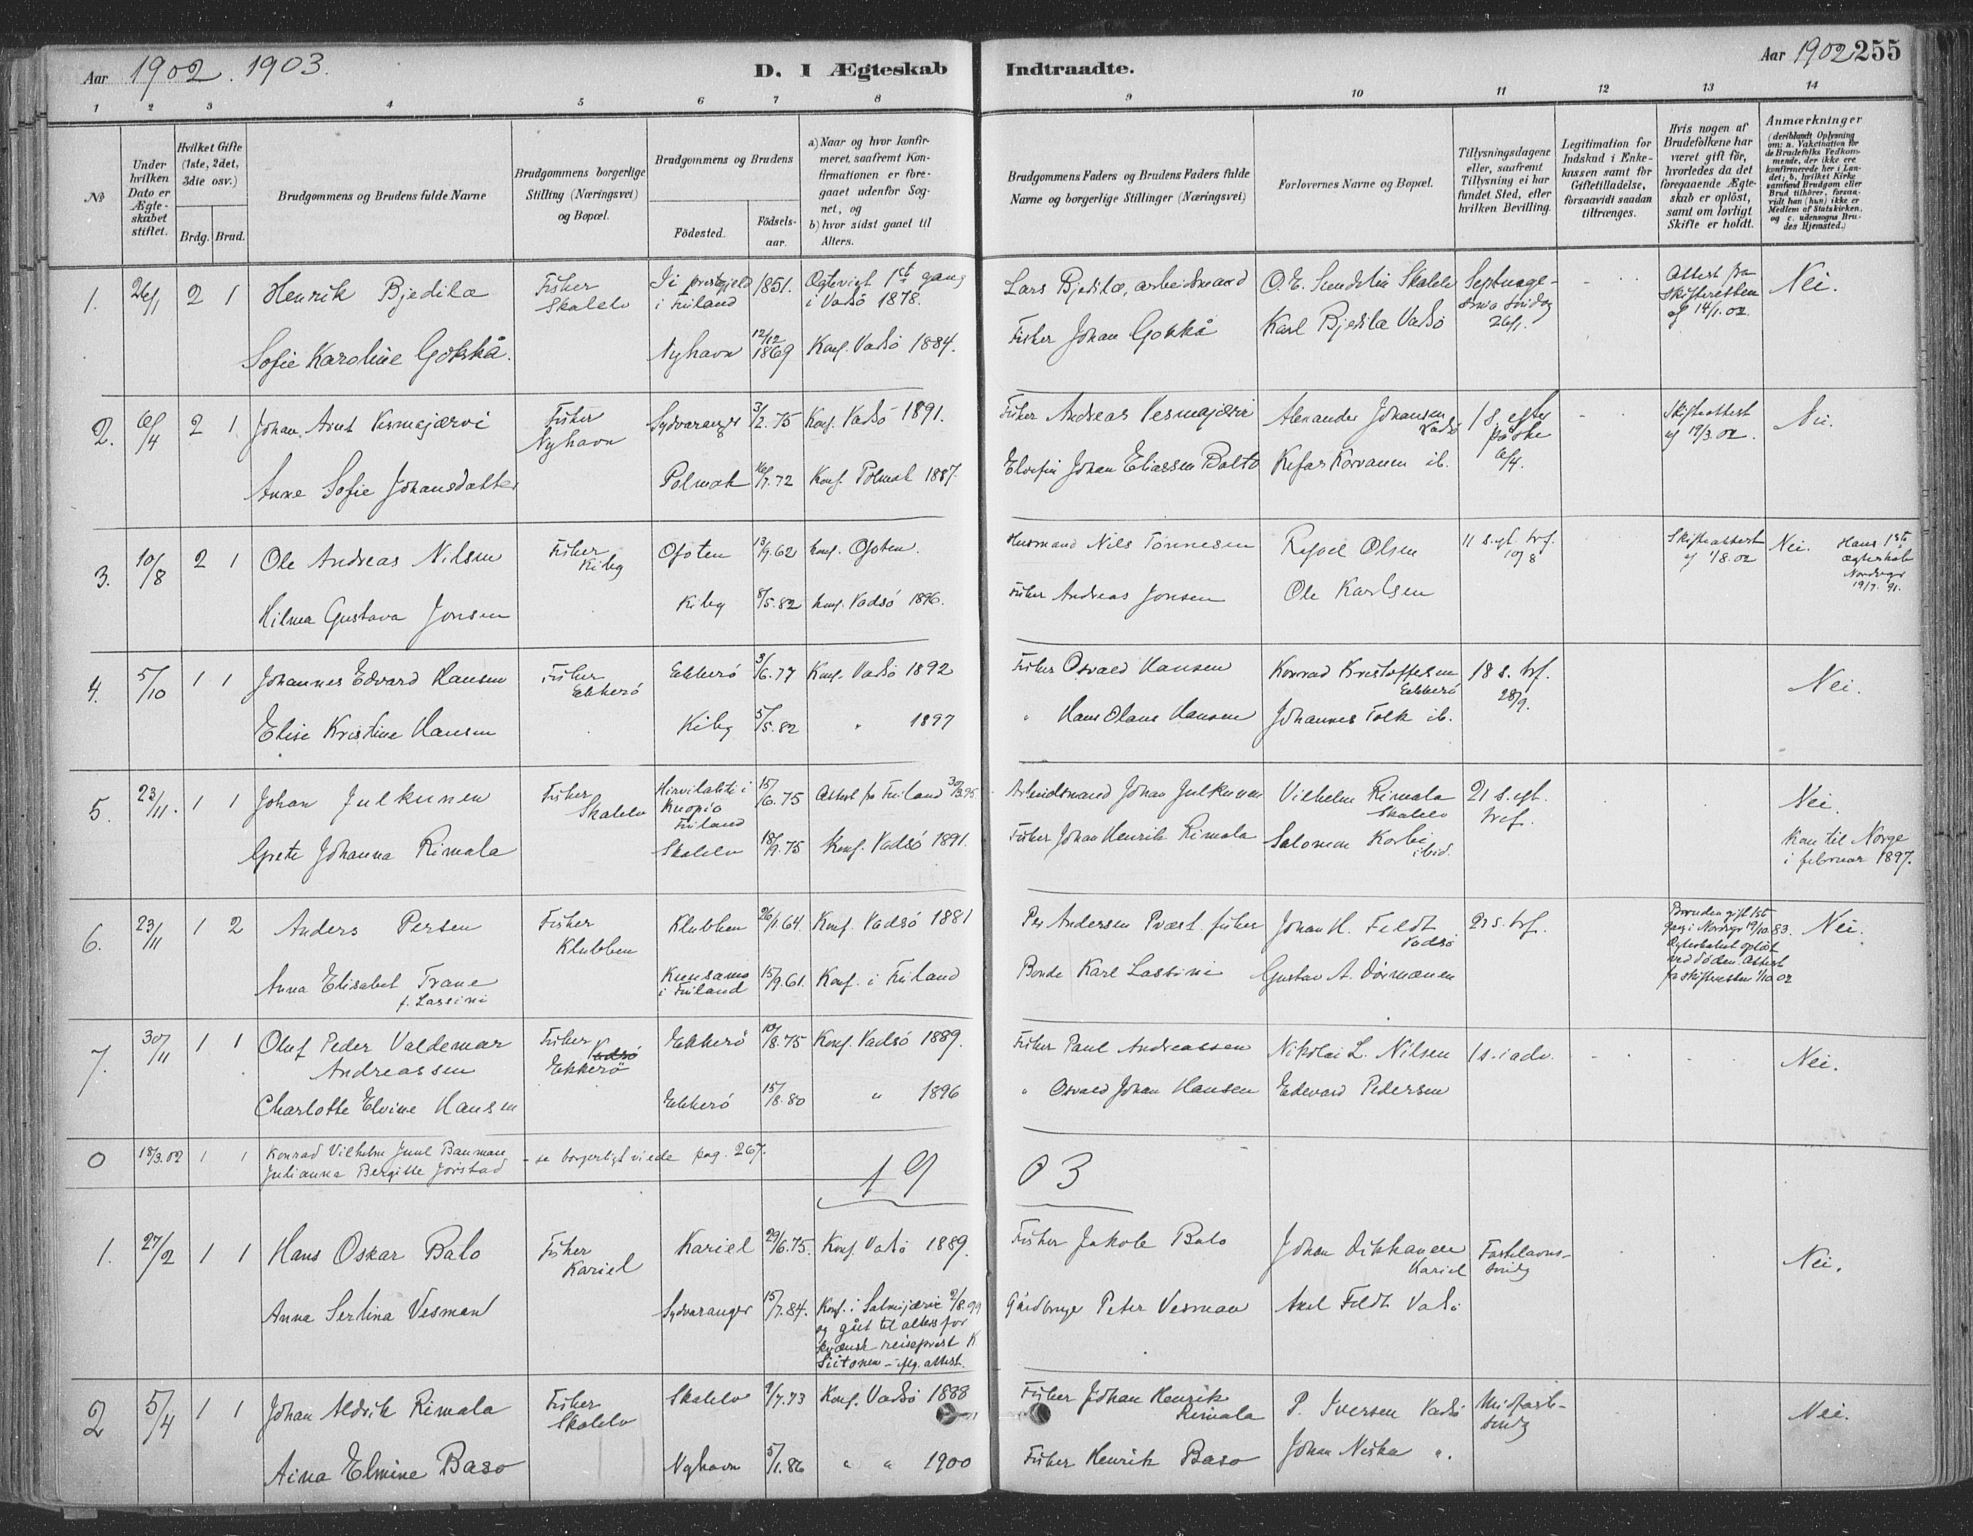 Aar 1902. 1903.
D. I Ægteskab Indtraadte.
Aar 1902 255
1 2 3 4 5 6 7 8 9 10 11 12 13 14
№
Under hvilken Dato er Ægteskabet stiftet.
Hvilket Gifte (1ste, 2det, 3die osv.)
Brdg. Brud.
Brudgommens og Brudens fulde Navne
Brudgommens borgerlige Stilling (Næringsvei) og Bopæl.
Brudgommens og Brudens
Födested. Födselsaar.
a) Naar og hvor konfirmeret, saafremt Konfirmationen er foregaaet udenfor Sognet, og
b) hvor sidst gaaet til Alters.
Brudgommens Faders og Brudens Faders fulde Navne og borgerlige Stillinger (Næringsvei)
Forlovernes Navne og Bopæl.
Tillysningsdagene eller, saafremt Tillysning ei har fundet Sted, efter hvilken Bevilling.
Legitimation for Indskud i Enkekassen samt for Giftetilladelse, forsaavidt saadan tiltrænges.
Hvis nogen af Brudefolkene har været gift för, hvorledes da det foregaaende Ægteskab er oplöst, samt om lovligt Skifte er holdt.
Anmærkninger
(deriblandt Oplysning om: a. Vakcination för de Brudefolks Vedkommende, der ikke ere konfirmerede her i Landet; b. hvilket Kirkesamfund Brudgom eller Brud tilhörer, forsaavidt han (hun) ikke er Medlem af Statskirken, og c. udensogns Brudes Hjemsted.)
1. 26/1 2 1 Henrik Bjedila Fisker Skalelv i Finland 1851. Ogtevigt 1st gang i Vadsö 1878. Lars Bjedila, arbeidsmand O. E. Sundelin Skalelv Septuagesima søndag 26/1. - Attest fra Skifteretten af 14/1.02. Nei.
Sofie Karoline Gokkå. Nyhavn 12/12 1869 Konf. Vadsö 1884. Fisker Johan Gokkå Karl Bjedila Vadsö
2. 6/4 2 1 Johan Arnt Vesmajærvi Fisker Nyhavn Sydvaranger 3/2.75 Konf. Vadsö 1891. Fisker Andreas Vesmajærvi Alexander Johansen Vadsö 1 s. efter påske 6/4. - Skifteattest af 19/3.02. Nei.
Anne Sofie Johansdatter Polmak 16/7.72 Konf. Polmak 1887. Elvefin Johan Eliassen Balto Kefas Korvanen ib.
3. 10/8 2 1 Ole Andreas Nilsen Fisker Kiby Ofoten 13/9.62 konf. Ofoten. Husmand Nils Tönnesen Olsen 11 s. ef. tref. 10/8 Skifteattest af 1/8.02 Nei. Hans 1ste ægteskab 19/7.91.
Hilma Gustava Jonsen Kiby 8/5.82 konf. Vadsö 1896. Fisker Andreas Jonsen Ole Karlsen
4. 5/10 1 1 Johannes Edvard Hansen Fisker Ekkerö Ekkerö 3/6.77 Konf. Vadsö 1892 Fisker Osvald Hansen Konrad Kristoffersen Ekkerö 18 s. trf. 28/9. Nei.
Elise Kristine Hansen Kiby 5/5.82 " 1897 " Hans Olaus Hansen Johannes Folk ib.
5. 23/11. 1 1 Johan Julkunen Fisker Skalelv Hirvilahti i Kuopio Finland 15/6.75 Attest fra Finland 30/3.95. Arbeidsmand Johan Julkunen Vilhelm Rimala Skalelv 21 s. ef. tref. Nei.
Grete Johanna Rimala Skalelv 18/9.75 Konf. Vadsö 1891. Fisker Johan Henrik Rimala Salomon Korbi ibid. Kom til Norge i februar 1897.
6. 23/11 1 2 Anders Persen Fisker Klubben Klubben 26/1.64. Konf. Vadsö 1881 Per Andersen fisker Johan H. Feldt Vadsö 21 s. trf. Bruden gift 1ste gang i 19/10.83. Ægteskabet oplöst ved döden. Attest fra skifteretten 1/10 02 Nei.
Anna Elisabet Trane f. Lassini Kuusamo i Finland 15/9.61. Konf. i Finland Bonde Karl Lassini Gustav A. Dörmænen
7. 30/11 1 1 Oluf Peder Valdemar Andreassen Fisker Vadsö Ekkerö Ekkerö 10/8.75 Konf. Vadsö 1889. Fisker Paul Andreassen Nikolai L. Nilsen 1 s. i adv. - - Nei.
Charlotte Elvine Hansen Ekkerö 15/8.80 " 1896 " Osvald Johan Hansen Edevard Pedersen
0 18/3.02 1 1 Konrad Vilhelm Juul Bauman
Julianna Bergitte Jörstad - se borgerligt viede pag. 267.
19 03
1. 27/2 1 1 Hans Oskar Balo Fisker Kariel Kariel 29/6.75. Konf. Vadsö 1889. Fisker Jakob Balo Johan Dikkanen Kariel Fastelavnssöndg Nei.
Anna Serlina Vesman Sydvaranger 15/7.84. Konf. i Salmijærvi 2/8.99 og gåt til alters for kvænsk reiseprest K Siitonen - iflg. attest. Gårdbruger Peter Vesman Axel Feldt Vadsö
2 5/4 1 1 Johan Aldrik Rimala Fisker Skalelv Skalelv 9/7.73 Konf. Vadsö 1888 Fisker Johan Henrik Rimala P. Iversen Vadsö Midfastsöndg Nei.
Aina Elmine Baso Nyhavn 5/1.86 " " 1900 Fisker Henrik Baso Johan Niska ".